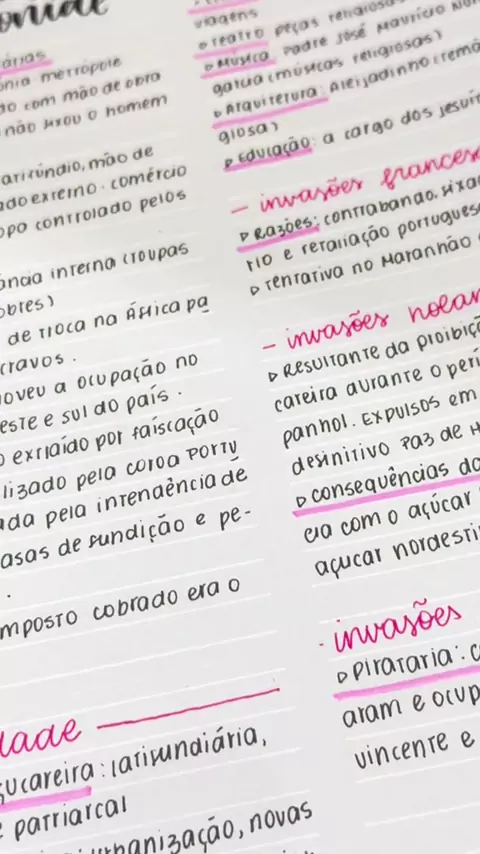 onial
árias
ônia metrópole
do com mão de obra
não fixou o homem
latifúndio, mão de
ado externo. comércio
controlado pelos
ância interna (roupas
obres)
de troca na África pa
cravos.
oveu a ocupação no
este e sul do país.
o extraído por faiscação
lizado pela coroa Portu
ada pela intendência de
asas de fundição e pe-
.
mposto cobrado era o
dade
çucareira: latifundiária,
e patriarcal
urbanização, novas
viagens
▹ teatro: peças religiosas
▹ Música: Padre José Maurício Nun
garcia (músicas religiosas)
▹ Arquitetura: Aleijadinho (temá
giosa)
▹ Educação: a cargo dos jesuít
- invasões frances
▹ Razões: contrabando, fixaç
rio e retaliação portugues
▹ tentativa no Maranhão
- invasões holan
▹ Resultante da proibiçã
careira durante o perí
panhol. Expulsos em
definitivo Paz de H
▹ consequências da
cia com o açúcar
açucar nordesti
- invasões
▹ pirataria: c
aram e ocup
vincente e